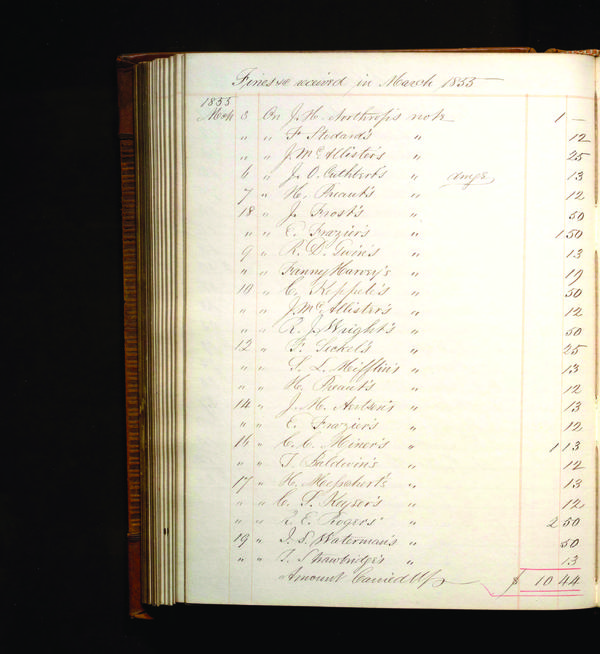 Fines &c received in March 1855
1855
Mch 3 On J. H. Northrop's note 1 –
" " F. Stodard's " 12
" " J. McAllister's " 25
6 " J. O. Cuthbert's " 13
7 " H. Preaut's " 12
18 " J. Frost's " 50
" " E. Frazier's " 1 50
9 " R. D. Gwin's " 13
" " Fanny Harvey's " 19
10 " C. Keppele's " 50
" " J. McAllister's " 12
" " R. J. Wright's " 50
12 " F. Sickel's " 25
" " S. L. Mifflin's " 13
" " H. Preaut's " 12
14 " J. M. Aertsen's " 13
" " E. Frazier's " 12
16 " C. C. Miner's " 1 13
" " T. Baldwin's " 12
17 " H. 13
" " C. P. Keyser's " 12
" " R. E. Rogers' " 2 50
19 " I. S. Waterman's " 50
" " J. Strawbridge's " 13
Amount Carried Up $ 10 44